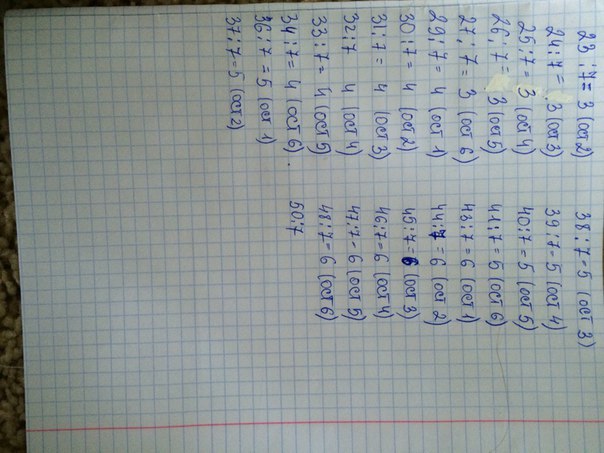 23 : 7 = 3 (ост 2)
24 : 7 = 3 (ост 3)
25 : 7 = 3 (ост 4)
26 : 7 = 3 (ост 5)
27 : 7 = 3 (ост 6)
29 : 7 = 4 (ост 1)
30 : 7 = 4 (ост 2)
31 : 7 = 4 (ост 3)
32 : 7 4 (ост 4)
33 : 7 = 4 (ост 5)
34 : 7 = 4 (ост 6)
36 : 7 = 5 (ост 1)
37 : 7 = 5 (ост 2)
38 : 7 = 5 (ост 3)
39 : 7 = 5 (ост 4)
40 : 7 = 5 (ост 5)
41 : 7 = 5 (ост 6)
43 : 7 = 6 (ост 1)
44 : 7 = 6 (ост 2)
45 : 7 = 6 (ост 3)
46 : 7 = 6 (ост 4)
47 : 7 = 6 (ост 5)
48 : 7 = 6 (ост 6)
50 : 7